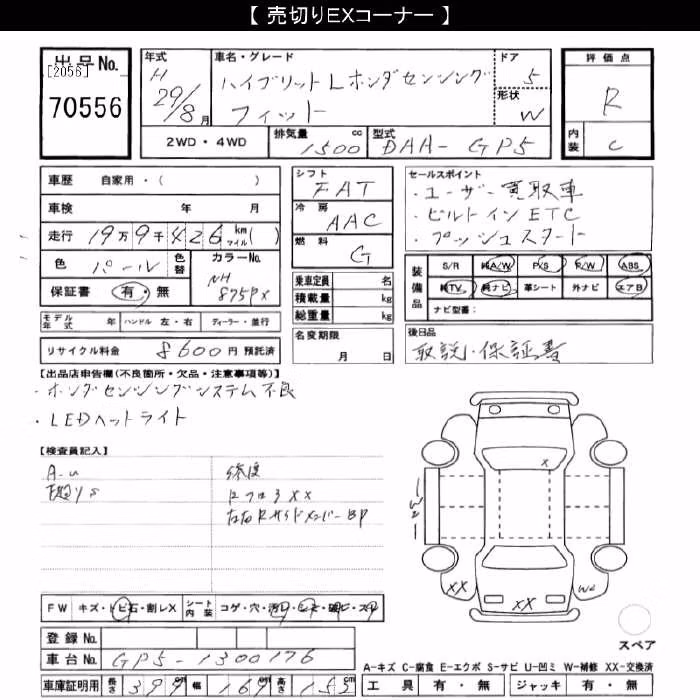 【 売切りEXコーナー 】
出品No.
[2056]
70556
年式
H
29/8 月
車名・グレード
ハイブリット L ホンダセンシング
フィット
ドア
5
形状
W
評価点
R
内装
C
2WD・4WD
排気量 1500 cc
型式 DAA- GP5
車歴 自家用・( )
車検 年 月
走行 19万9千426 km マイル( )
色 パール 色替
カラーNo. NH 875PX
保証書 有・無
モデル年式 年 ハンドル 左・右 ディーラー・並行
リサイクル料金 8600円 預託済
シフト
FAT
冷房
AAC
燃料
G
乗車定員 名
積載量 kg
総重量 kg
名変期限
月 日
セールスポイント
・ユーザー買取車
・ビルトインETC
・プッシュスタート
装備品
S/R 純A/W P/S P/W ABS
純TV 純ナビ 革シート 外ナビ エアB
ナビ型番:
後日品
取説・保証書
【出品店申告欄(不良箇所・欠品・注意事項等)】
・ホンダセンシングシステム不良
・LEDヘットライト
【検査員記入】
A-u
修復
XX
BP
W2
X
XX
XX
W2
FW キズ・トビ石・割レX
シート内装 コゲ・穴・汚レ
登録No.
車台No. GP5-1300176
車庫証明用 長さ 399cm 幅 169cm 高さ 153cm
スペア
A-キズ C-腐食 E-エクボ S-サビ U-凹ミ W-補修 XX-交換済
工具 有・無 ジャッキ 有・無